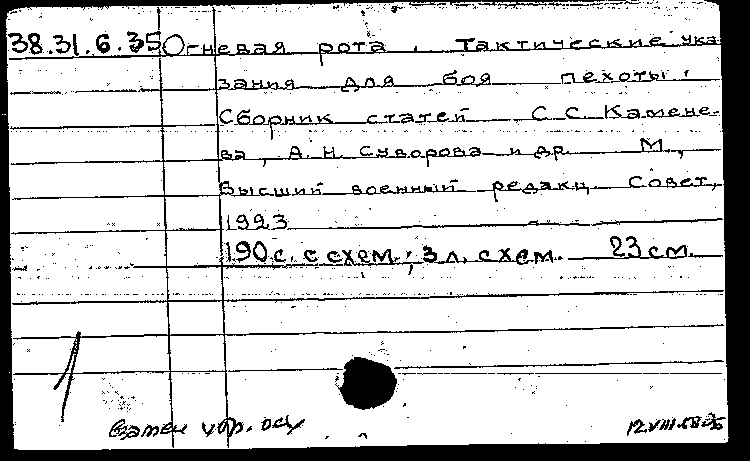 38.31.6.35 Огневая рота. Тактические ука-
зания для боя пехоты.
Сборник статей С.С. Камене-
ва, А.Н. Суворова и др. М.,
Высший военный редакц. Совет,
1923
190 с. с схем.; 3 л. схем. 23 см.
1
Взамен
12.VIII.58